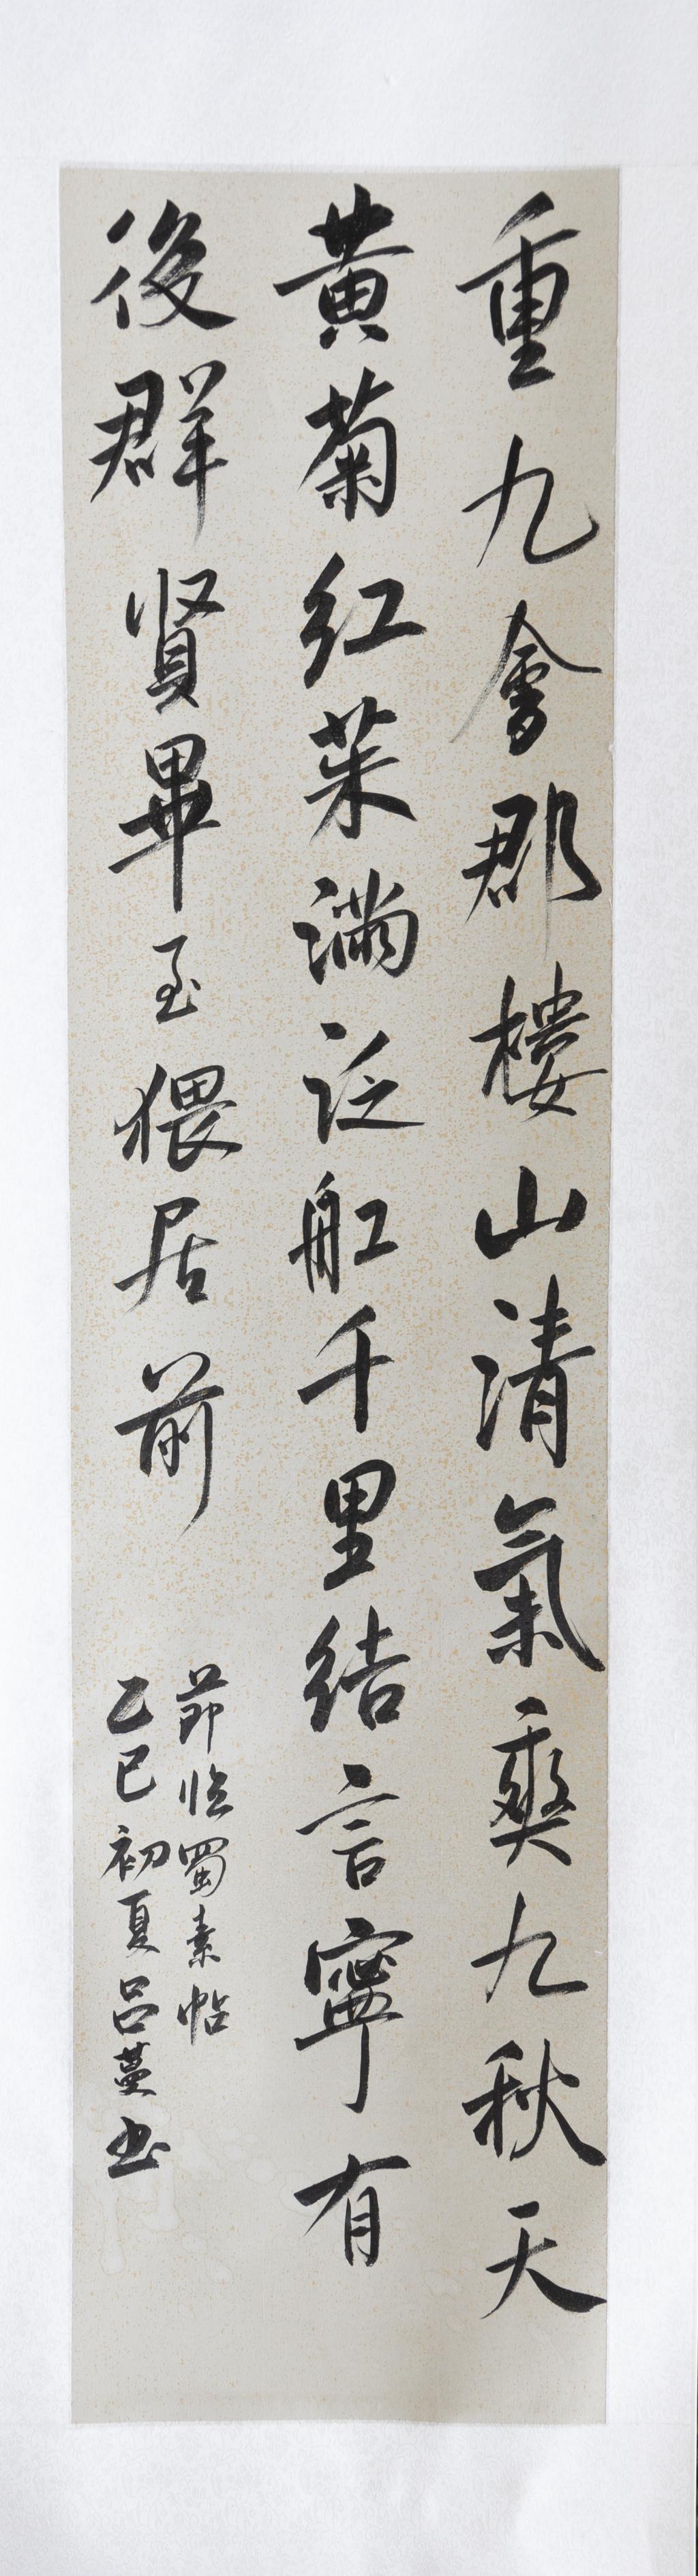 重九會郡樓山清氣爽九秋天
黄菊红茱滿泛舡千里结言寧有
後群賢畢至猥居前
節临蜀素帖
乙巳初夏吕蔓书